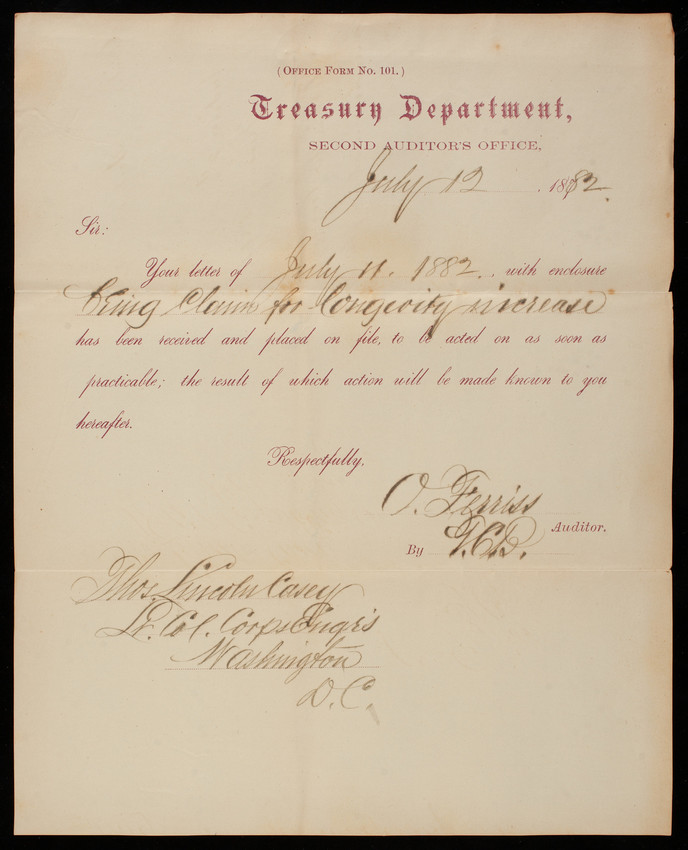 (OFFICE FORM No. 101.)
Treasury Department,
SECOND AUDITOR'S OFFICE,
July 12, 1882.
Sir:
Your letter of July 11. 1882., with enclosure
being Claim for longevity increase
has been received and placed on file, to be acted on as soon as
practicable; the result of which action will be made known to you
hereafter.
Respectfully,
O. Ferriss
Auditor.
By
Thos. Lincoln Casey
Lt. Col. Corps Engrs
Washington
D. C.